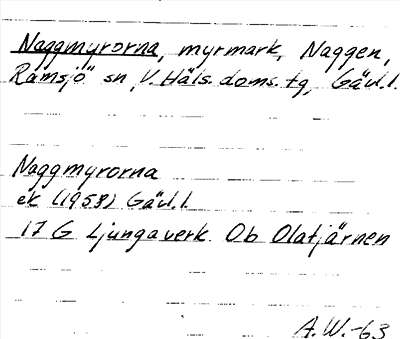 Naggmyrorna, myrmark, Naggen,
Ramsjö sn, V. Häls. doms. tg, Gävl. l.
Naggmyrorna
ek (1958) Gävl. l.
17 G Ljungaverk Ob Olatjärnen
A.W.-63